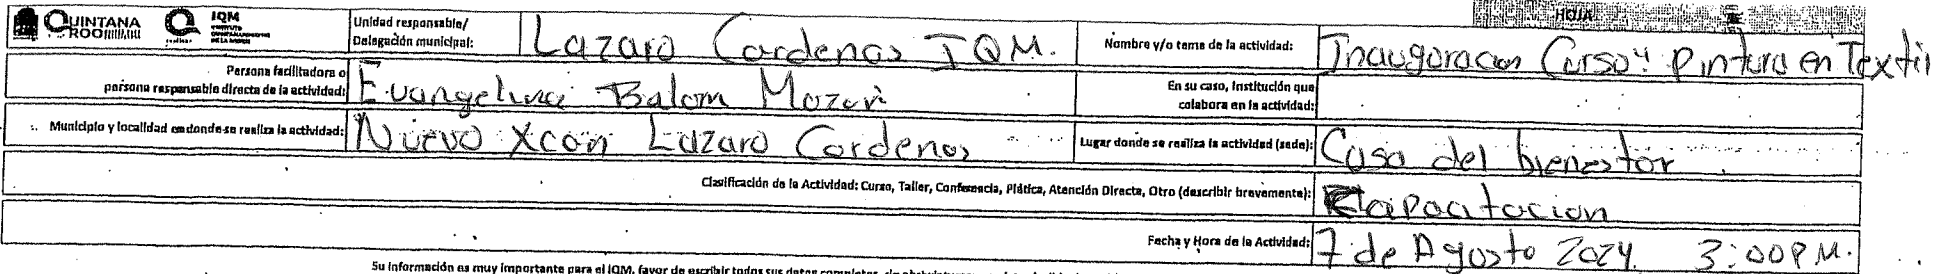 HOJA
QUINTANA ROO IQM INSTITUTO QUINTANARROENSE DE LA MUJER
Unidad responsable/ Delegación municipal: Lazaro Cardenas IQM. Nombre y/o tema de la actividad: Inauguracion Curso: Pintura en Textil
Persona facilitadora o persona responsable directa de la actividad: Evangelina Balam En su caso, Institución que colabora en la actividad:
Municipio y localidad en donde se realiza la actividad: Nuevo Xcan Lazaro Cardenas Lugar donde se realiza la actividad (sede): Casa del bienestar
Clasificación de la Actividad: Curso, Taller, Conferencia, Plática, Atención Directa, Otro (describir brevemente): Capacitacion
Fecha y Hora de la Actividad: 7 de Agosto 2024. 3:00 P.M.
Su información es muy importante para el IQM, favor de escribir todos sus datos completos,